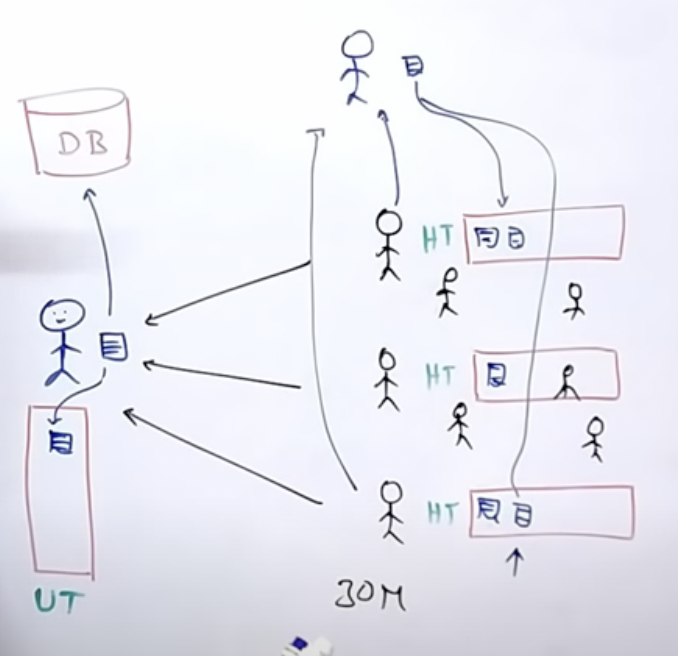 DB
HT
HT
HT
UT
30M